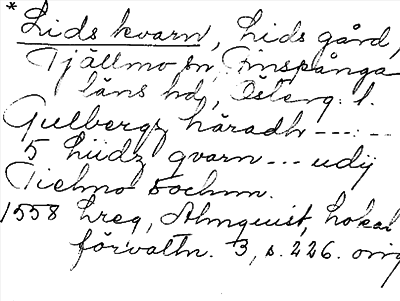 * Lids kvarn, Lids gård,
Tjällmo sn, Finspånga
läns hd, Österg. l.
Gulbergz häradh --- --
5 Liidz qvarn --- udij
Tielmo Sochnn.
1558 Lreg, Almquist, Lokal
förvaltn. 3, s. 226. orig